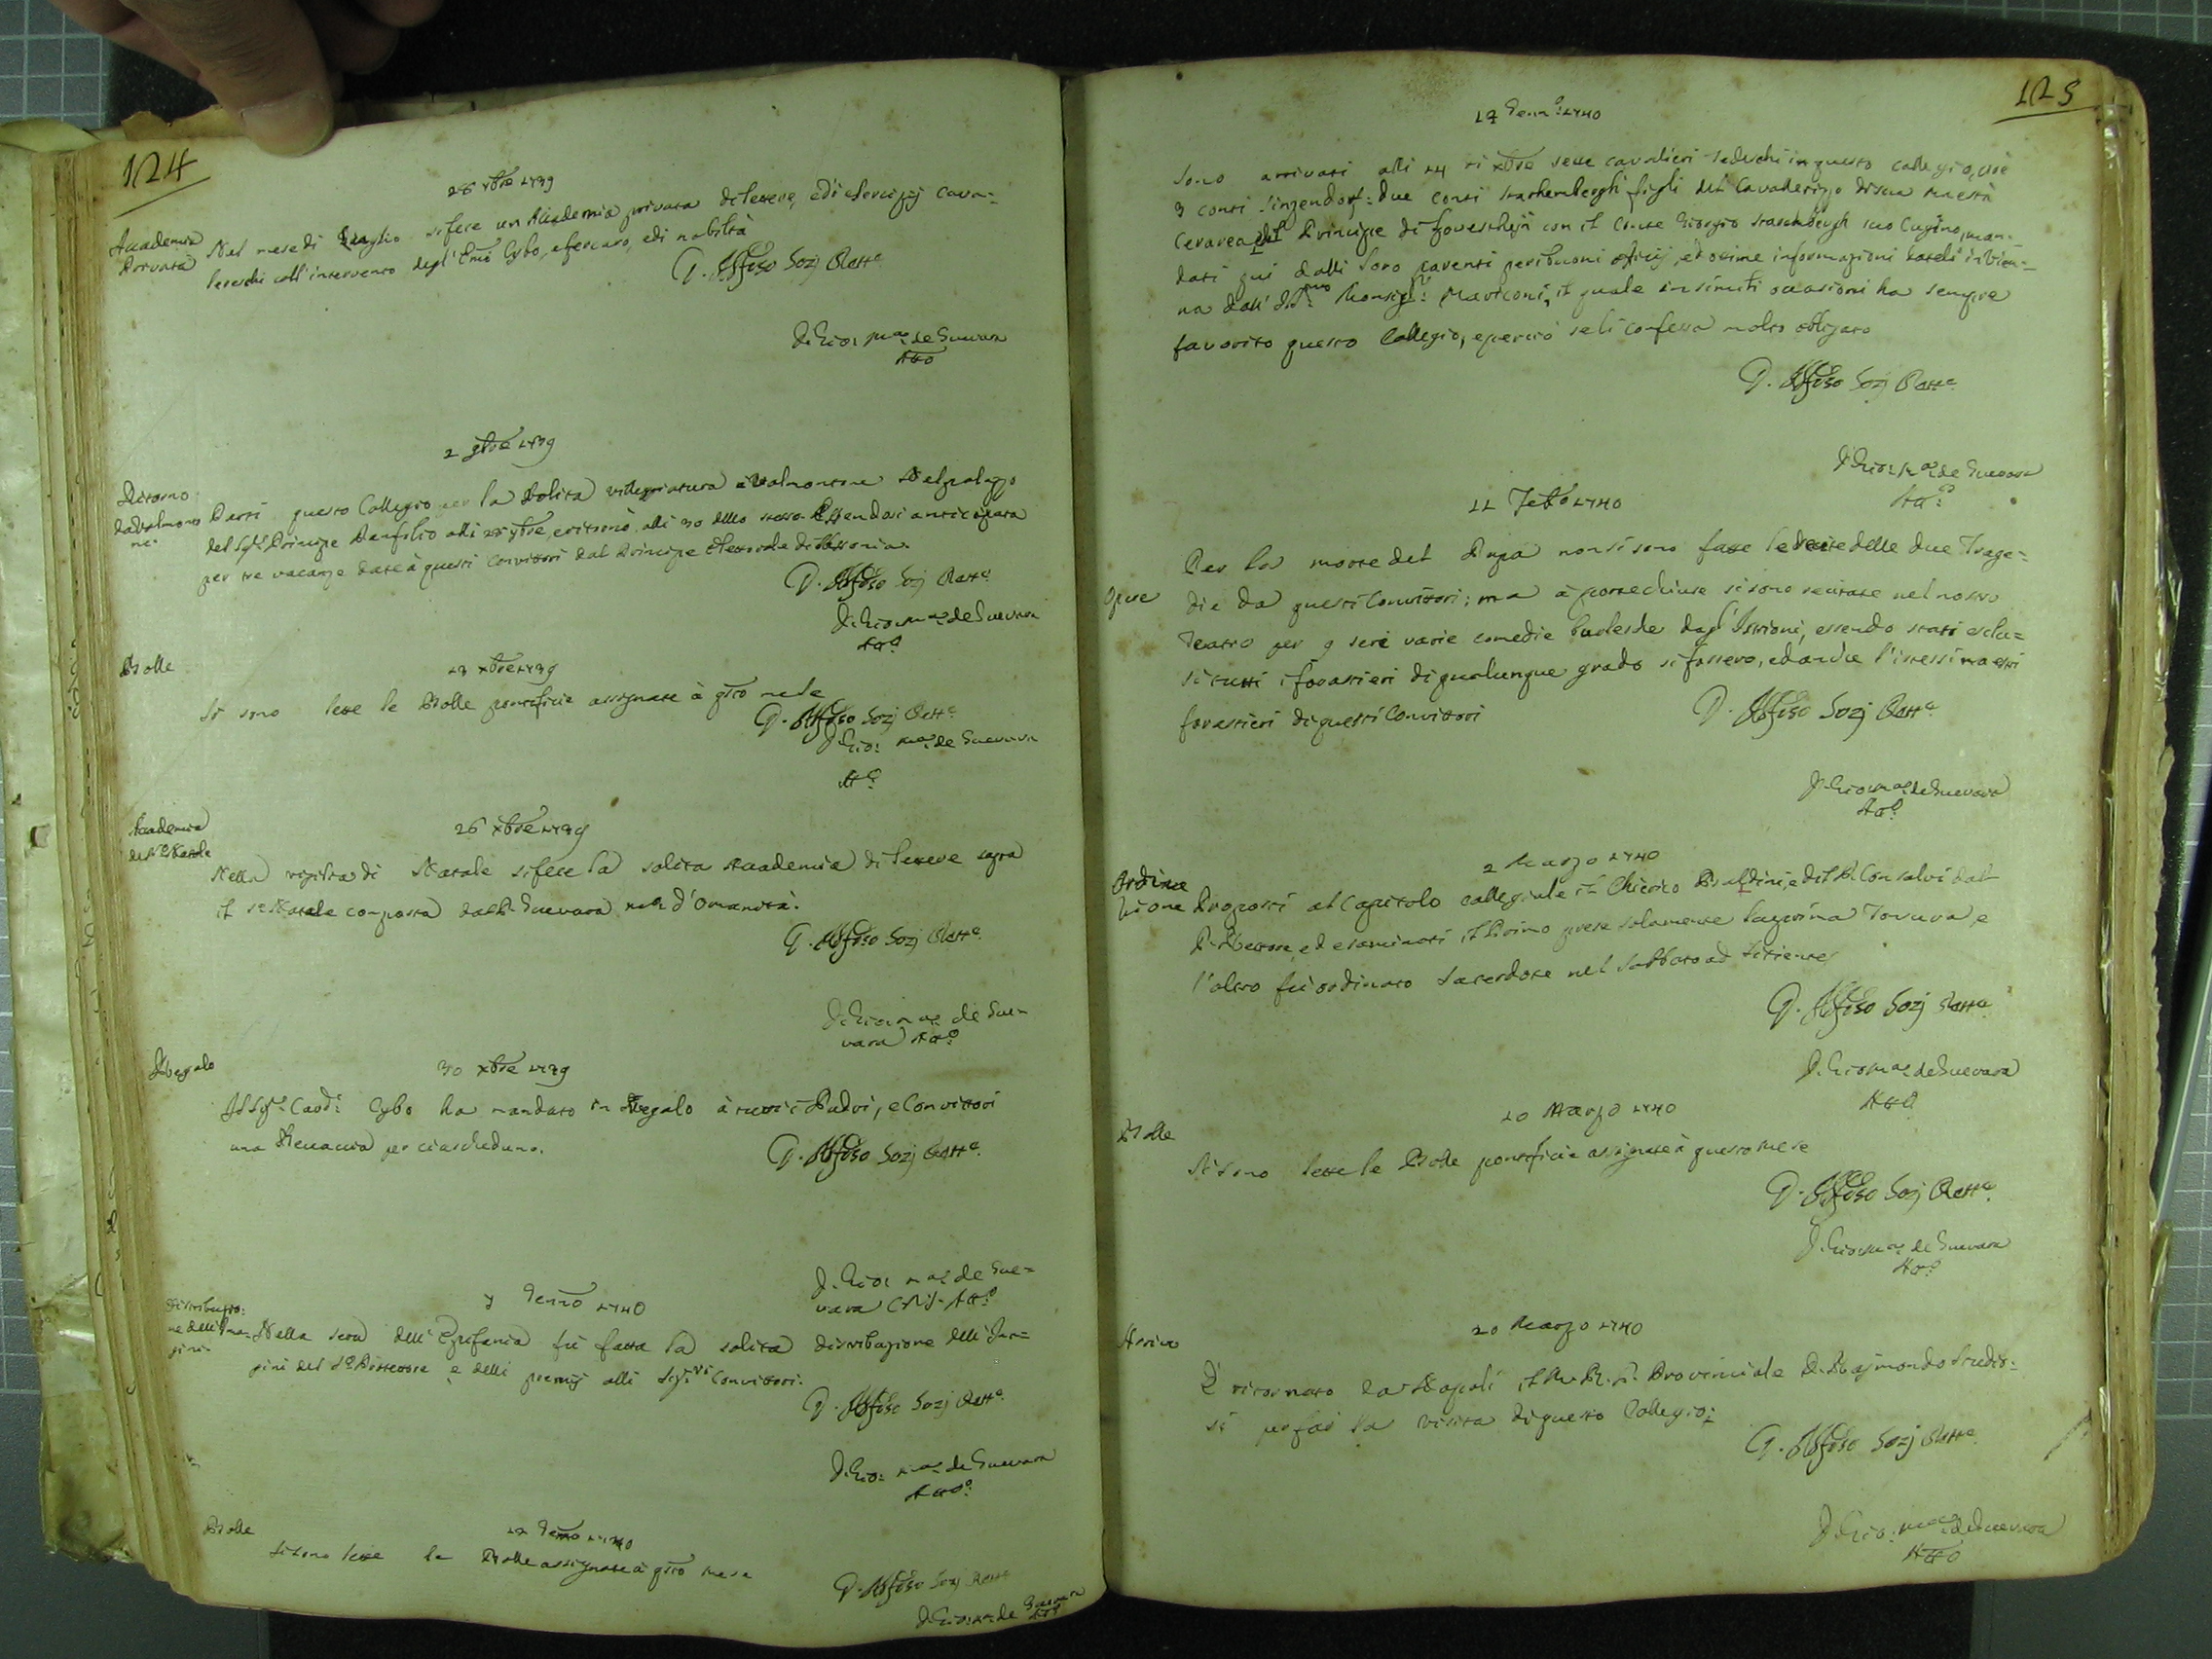 124
26 xbre 1739
Accademia
Privata
Nel mese di Luglio si fece un Accademia privata di lettere, e di esercizij cava=
lereschi coll'intervento degl'Emi Cybo, e ferraro, e di nobiltà
D. Alfoso Sozj Rettre
D. Gio: Mae de Guevara
Atto
2 9bre 1739
Ritorno
da Valmonto
ne
Partì questo Collegio per la solita villeggiatura à Valmontone nel palazzo
del Sigre Principe Panfilio alli 8bre, e ritornò alli 30 dello stesso Essendosi anticipata
per tre vacanze date à questi Convittori dal Principe Elettorale di Sassonia.
D. Alfoso Sozj Rettre
D. Gio: Mae de Guevara
Atto
Bolle
13 xbre 1739
Si sono lette le Bolle pontificie assignate à qsto mese
D. Alfoso Sozj Rettre
D. Gio: Mae de Guevara
Atto
Accademia
del SS. Natale
26 xbre 1739
Nella vigilia di Natale si fece la solita Accademia di lettere sopra
il SS. Natale composta dal P. Guevara mro d'Umanità.
D. Alfoso Sozj Rettre
D. Gio: Mae de Gue=
vara Atto
Regalo
30 xbre 1739
Il Sigre Card: Cybo ha mandato in Regalo à tutti i Padri, e Convittori
una per ciascheduno.
D. Alfoso Sozj Rettre
D. Gio: Mae de Gue=
vara CRS. Atto
Distribuzio:
ne dell'Ima:
gini
7 Genro 1740
Nella sera dell'Epifania fù fatta la solita distribuzione dell'Ima=
gini del So Protettore e delli premij alli Sigri Convittori.
D. Alfoso Sozj Rettre
D. Gio: Mae de Guevara
Atto
Bolle
12 Genro 1740
Si sono lette le Bolle assignate à qsto mese
D. Alfoso Sozj Rettre
D. Gio: Mae de Guevara
Atto
125
17 Genro: 1740
Sono arrivati alli 14 di xbre sette cavalieri Tedeschi in questo collegio, cioè
3 conti Sinzendorf: due conti Starhembergh figli del Cavallerizzo di sua Maestà
Cesarea, ed il Principe di con il Conte Giorgio Starembergh suo Cugino, man=
dati qui dalli loro parenti per i buoni officij, ed ottime informazioni dateli in Vien=
na dall'Illmo Monsigre: Mariconi, il quale in simili occasioni ha sempre
favorito questo Collegio, e perciò se li confessa molto obligato
D. Alfoso Sozj Rettre
D. Gio: Mae de Guevara
Atto
11 Febro 1740
Opere
Per la morte del Papa non si sono fatte le recite delle due Trage=
die da questi Convittori; ma à porte chiuse si sono recitate nel nostro
Teatro per 9 sere varie comedie burlesche dagl'Istrioni, essendo stati esclu=
si tutti i forastieri di qualunque grado si fossero, ed anche l'istessi maestri
forastieri di questi Convittori
D. Alfoso Sozj Rettre
D. Gio: Mae de Guevara
Atto
2 Marzo 1740
Ordina
zione
Proposti al Capitolo collegiale il Chierico Baldini, e del P. Consalvi dal
P. Rettore, ed esaminati il Primo prese solamente la prima Tonsura, e
l'altro fù ordinato Sacerdote nel Sabbato ad Sitientes
D. Alfoso Sozj Rettre
D. Gio: Mae de Guevara
Atto
10 Marzo 1740
Bolle
Si sono lette le Bolle pontificie assignate à questo Mese
D. Alfoso Sozj Rettre
D. Gio: Mae de Guevara
Atto
20 Marzo 1740
Arrivo
È ritornato da Napoli il M. R. P. Provinciale D. Rajmondo Studio=
si per far la visita di questo Collegio:
D. Alfoso Sozj Rettre
D. Gio: Mae de Guevara
Atto